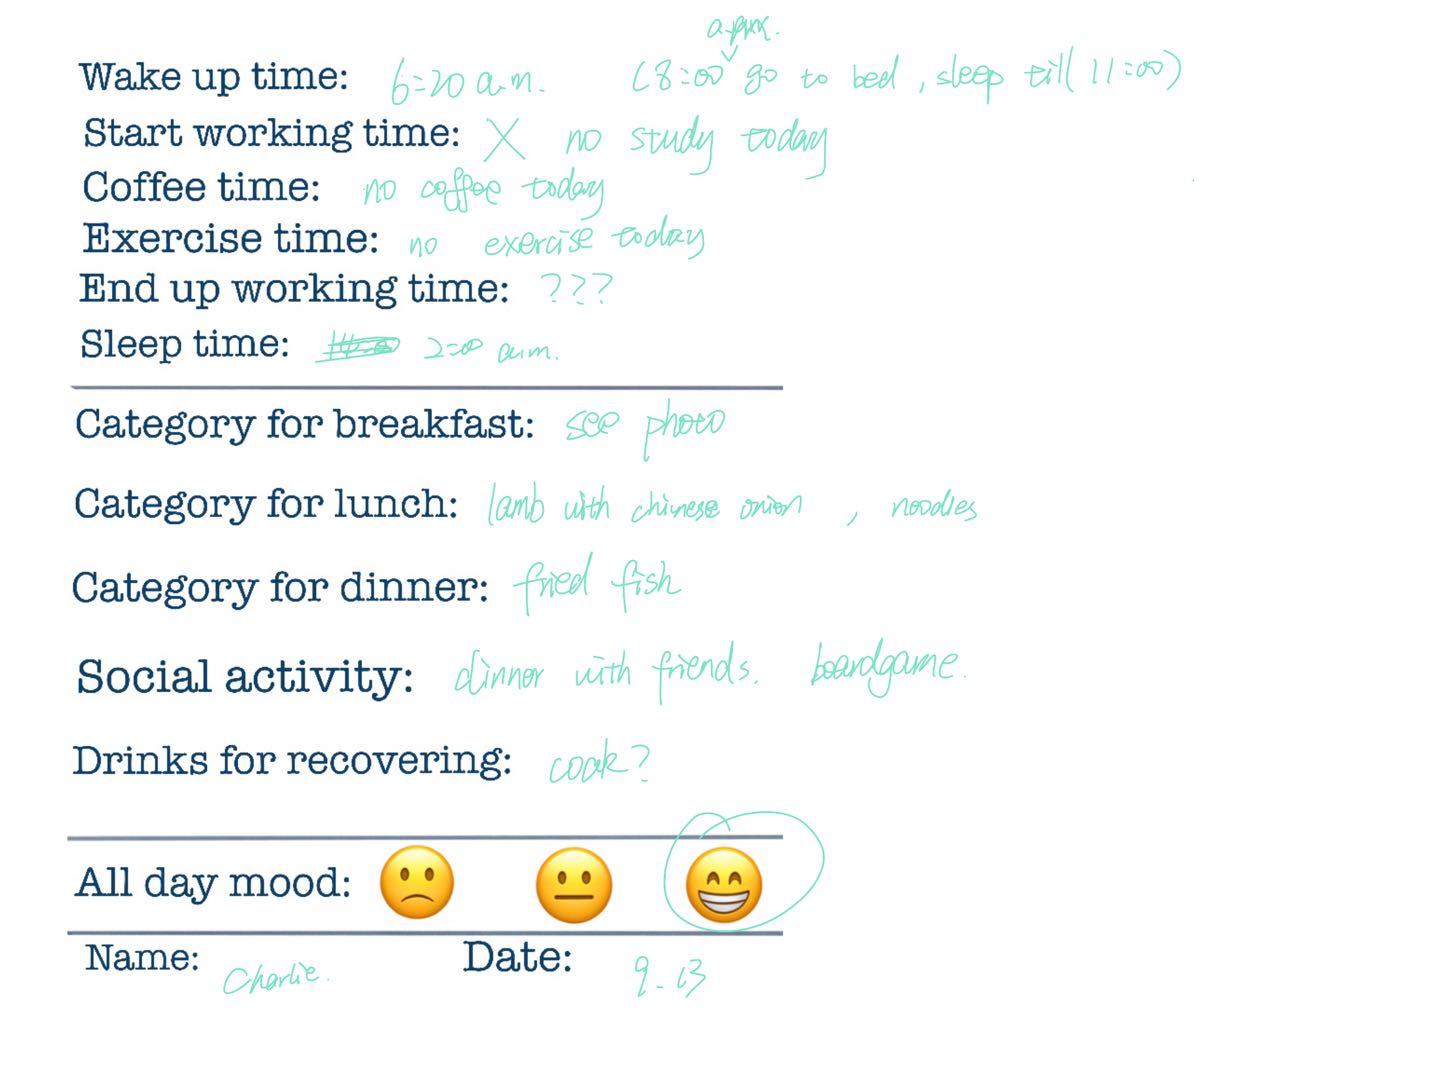 a.m.
Wake up time: 6:20 a.m. (8:00 go to bed, sleep till 11:00)
Start working time: X no study today
Coffee time: no coffee today
Exercise time: no exercise today
End up working time: ???
Sleep time: 2:00 a.m.
Category for breakfast: see photo
Category for lunch: lamb with chinese onion, noodles
Category for dinner: fried fish
Social activity: dinner with friends. boardgame.
Drinks for recovering: coak?
All day mood:
Name: Charlie. Date: 9.13